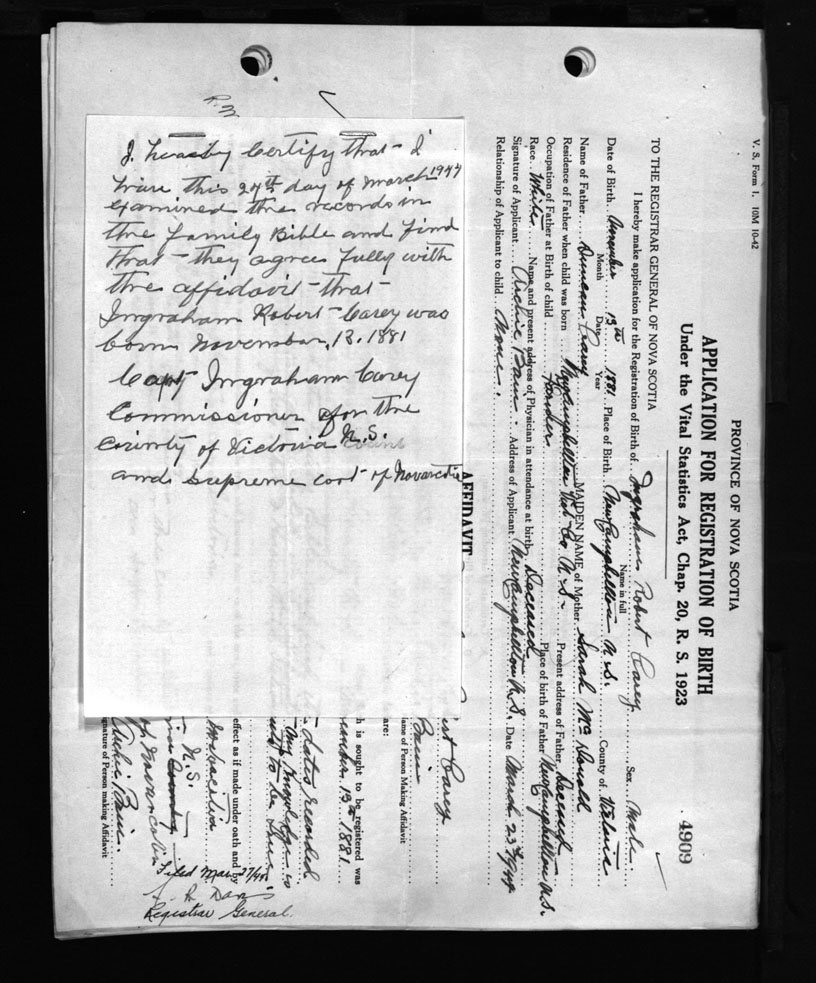 V. S. Form 1. 10M 10-42
PROVINCE OF NOVA SCOTIA
APPLICATION FOR REGISTRATION OF BIRTH
Under the Vital Statistics Act, Chap. 20, R. S. 1923
4909
TO THE REGISTRAR GENERAL OF NOVA SCOTIA
I hereby make application for the Registration of Birth of Ingraham Robert Carey Sex Male.
Name in full
Date of Birth November 13th 1881 Place of Birth New Campbellton N.S. County of Victoria
Month Date Year
Name of Father Duncan Carey MAIDEN NAME of Mother Sarah McDonald
Residence of Father when child was born New Campbellton Vict Co N.S. Present address of Father Deceased
Occupation of Father at Birth of child Farmer Place of birth of Father New Campbellton N.S.
Race White Name and present address of Physician in attendance at birth Deceased
Signature of Applicant Archie Bain. Address of Applicant New Campbellton N.S. Date March 23rd/44
Relationship of Applicant to child None.
R.W.
I heareby Certify that I
have this 27th day of March 1944
examined the records in
the family Bible and find
that they agree fully with
the affidavit that
Ingraham Robert Carey was
born November, 13. 1881
Capt Ingraham Carey
Commissioner for the
County of Victoria N.S.
and Supreme cort of Novascotia
AFFIDAVIT
Carey
Bain
ame of Person Making Affidavit
are:
h is sought to be registered was
ember 13th 1881
dates recorded
my knowledge is
to be
effect as if made under oath and by
N.S.
of Novascotia
Archie Bain.
gnature of Person making Affidavit
Filed Mar. 27/44
Registrar General.